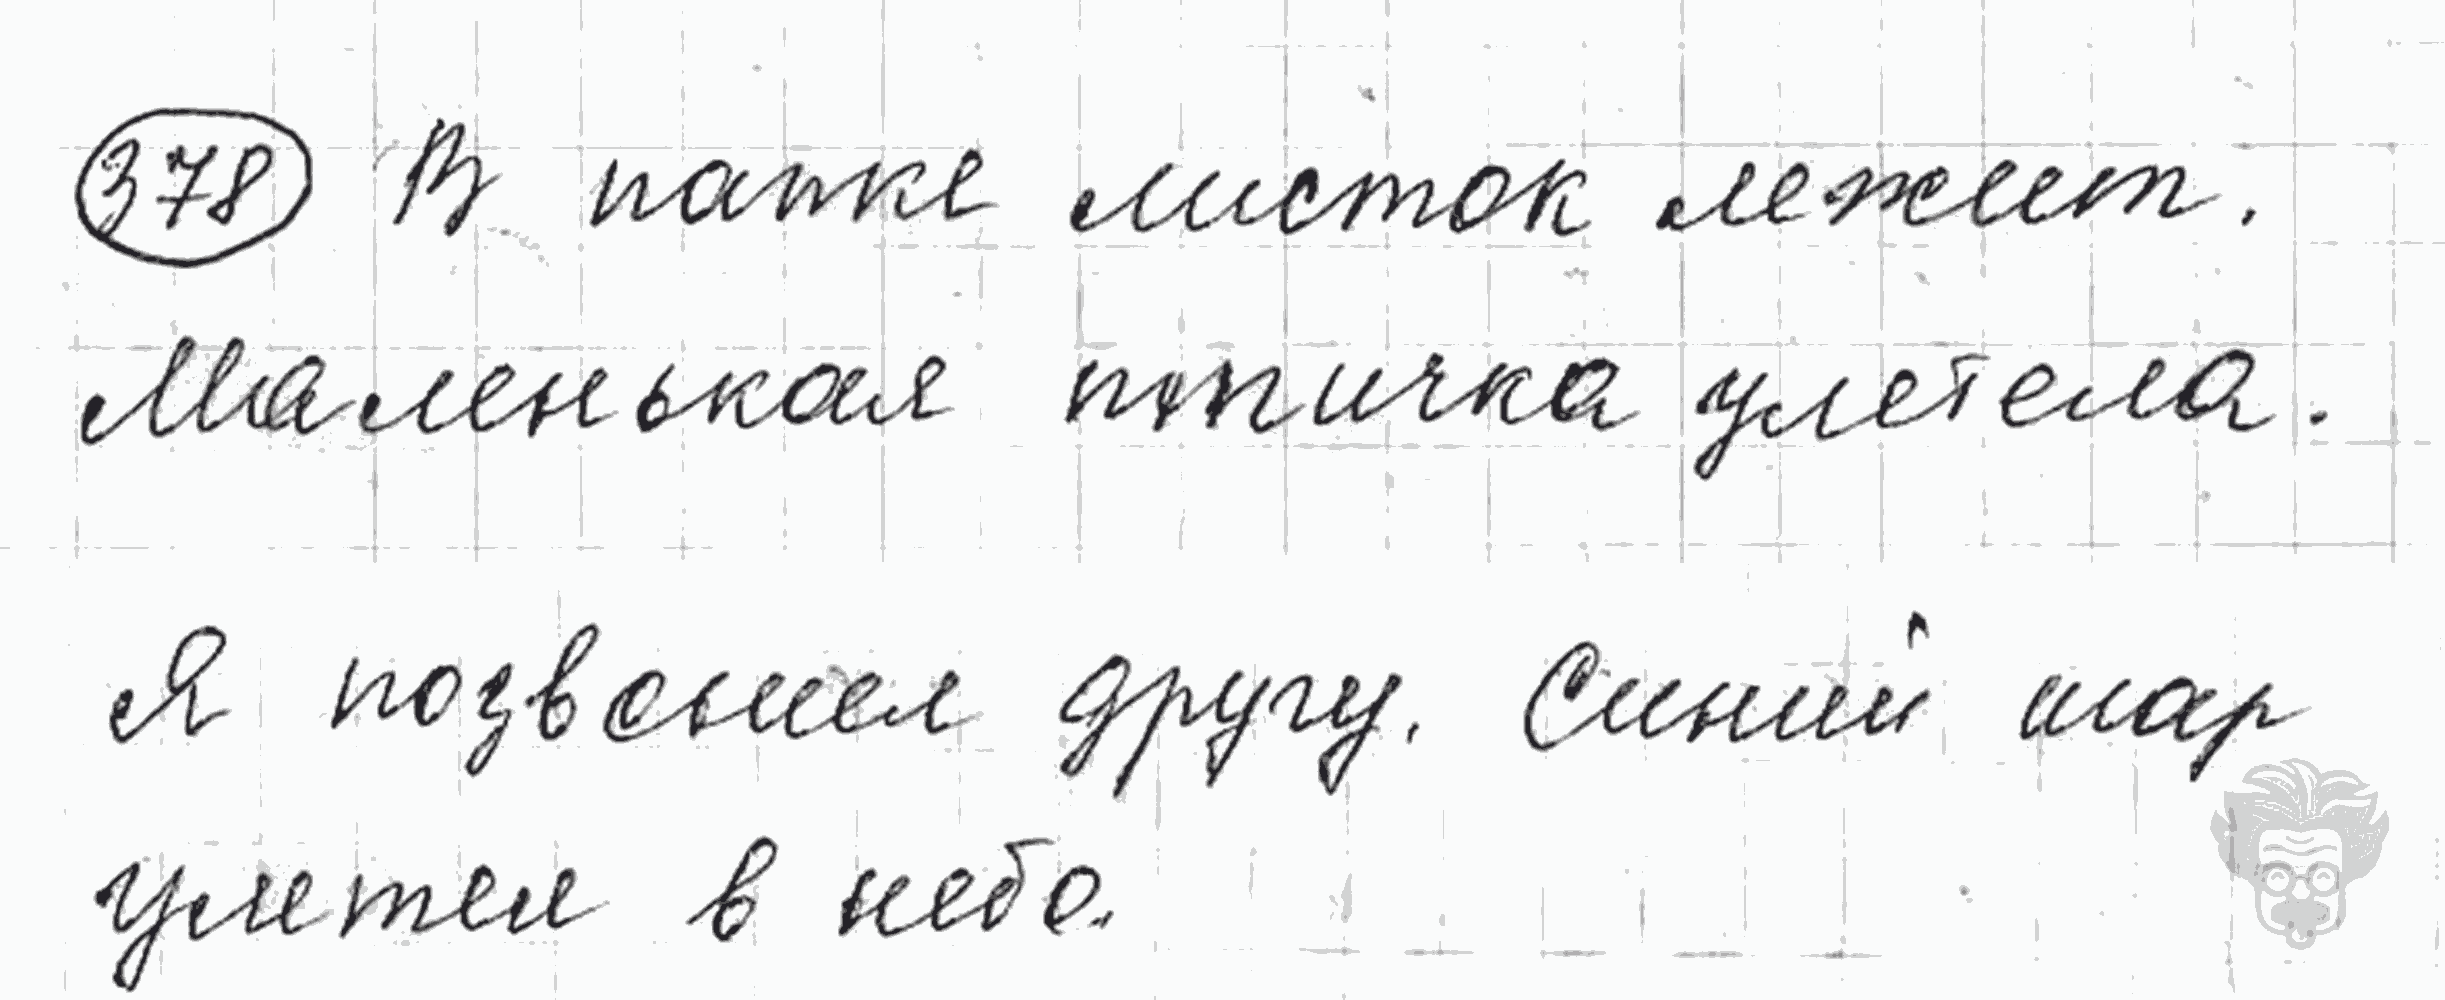 378 В папке листок лежит.
Маленькая птичка улетела.
Я позвонил другу. Синий шар
улетел в небо.